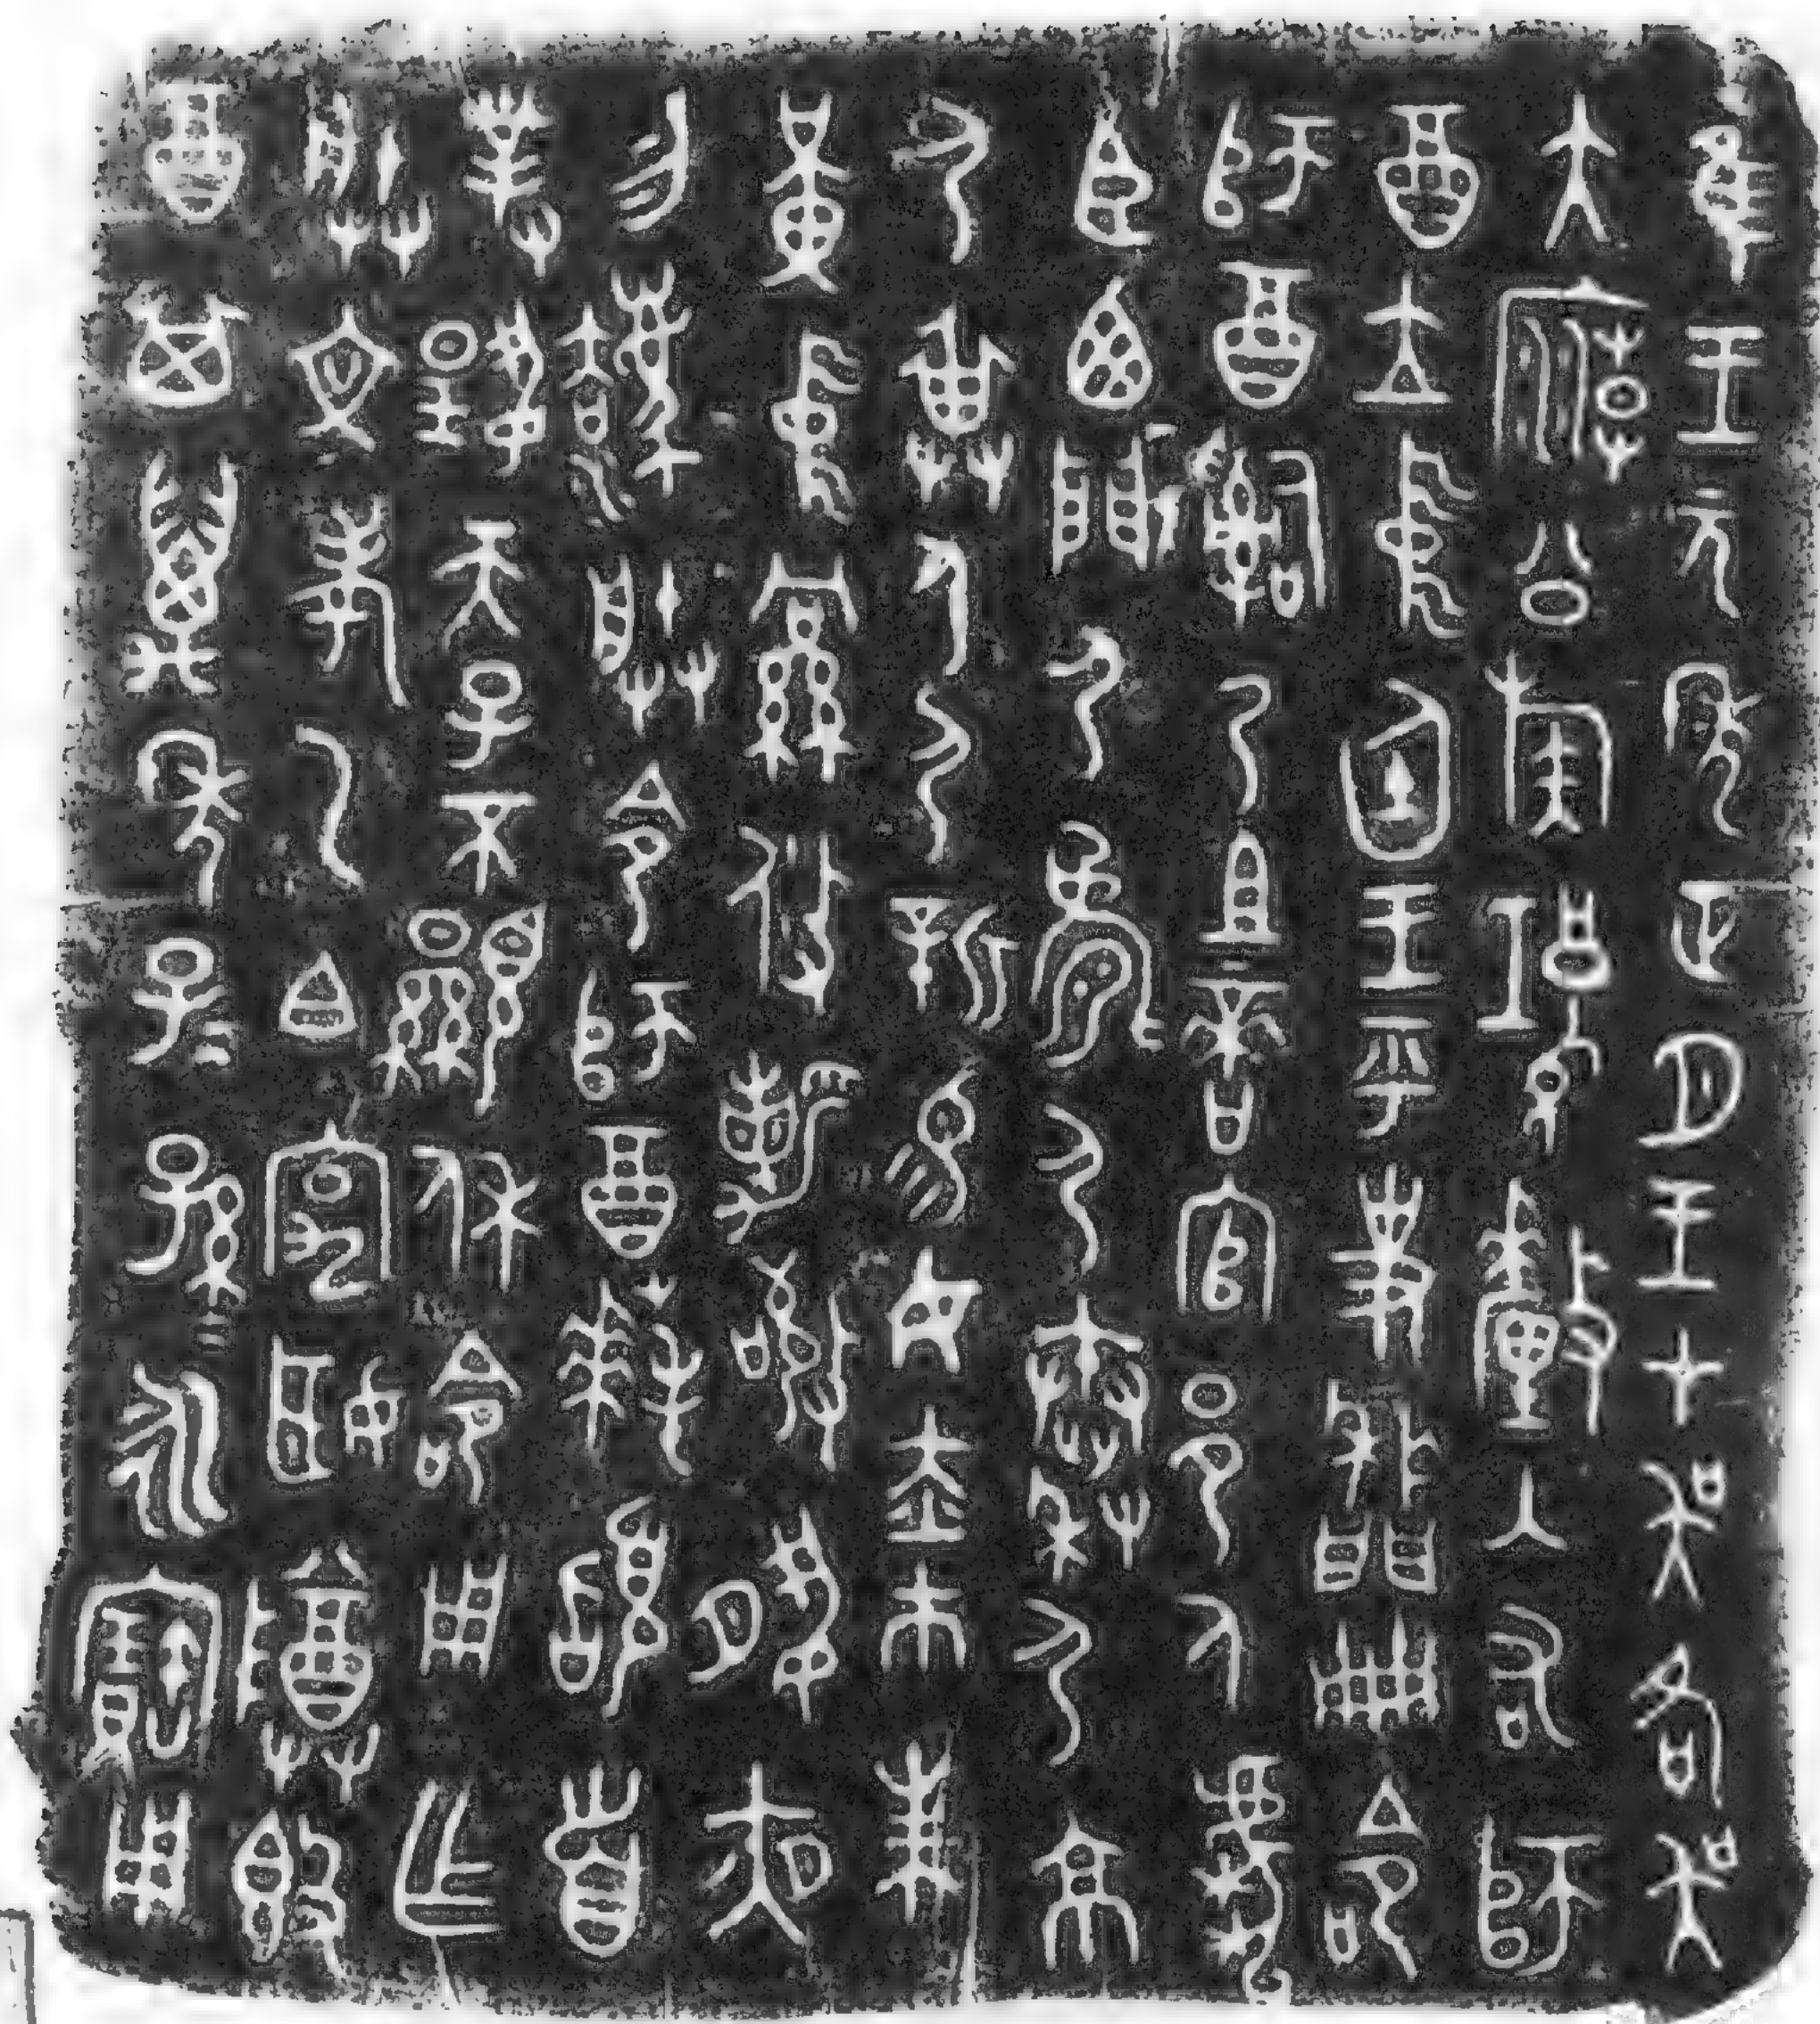 隹王元年正月王才吳各吳
大廟公族𤔲釐入右師
酉立中廷王乎史𤖣冊命
師酉𤔲乃且啻官邑人虎
臣西門尸𩁹尸秦尸京
尸畁身尸新易女赤巿朱
黃中絅攸勒敬夙夜
勿灋朕令師酉拜𩒨首
對揚天子不顯休命用乍
朕文考乙白宮姬尊𣪘
酉其萬年子=孫=永寶用